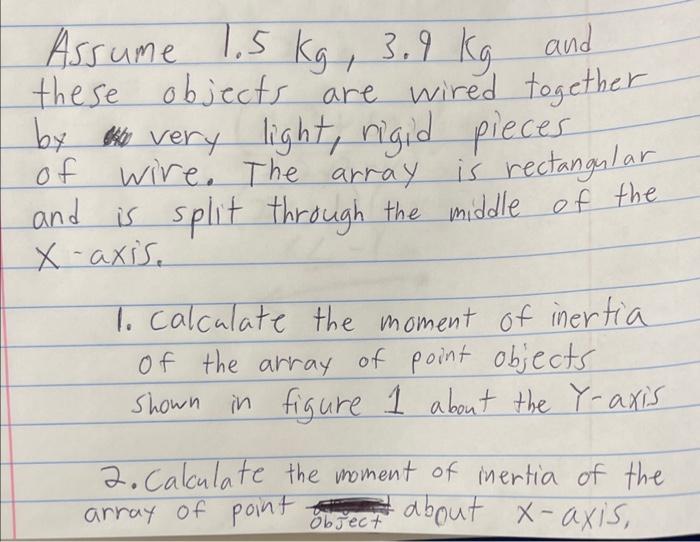 Assume 1.5 kg, 3.9 kg and
these objects are wired together
by very light, rigid pieces
of wire. The array is rectangular
and is split through the middle of the
X-axis.
1. Calculate the moment of inertia
of the array of point objects
shown in figure 1 about the Y-axis
2. Calculate the moment of inertia of the
array of point object about x-axis.